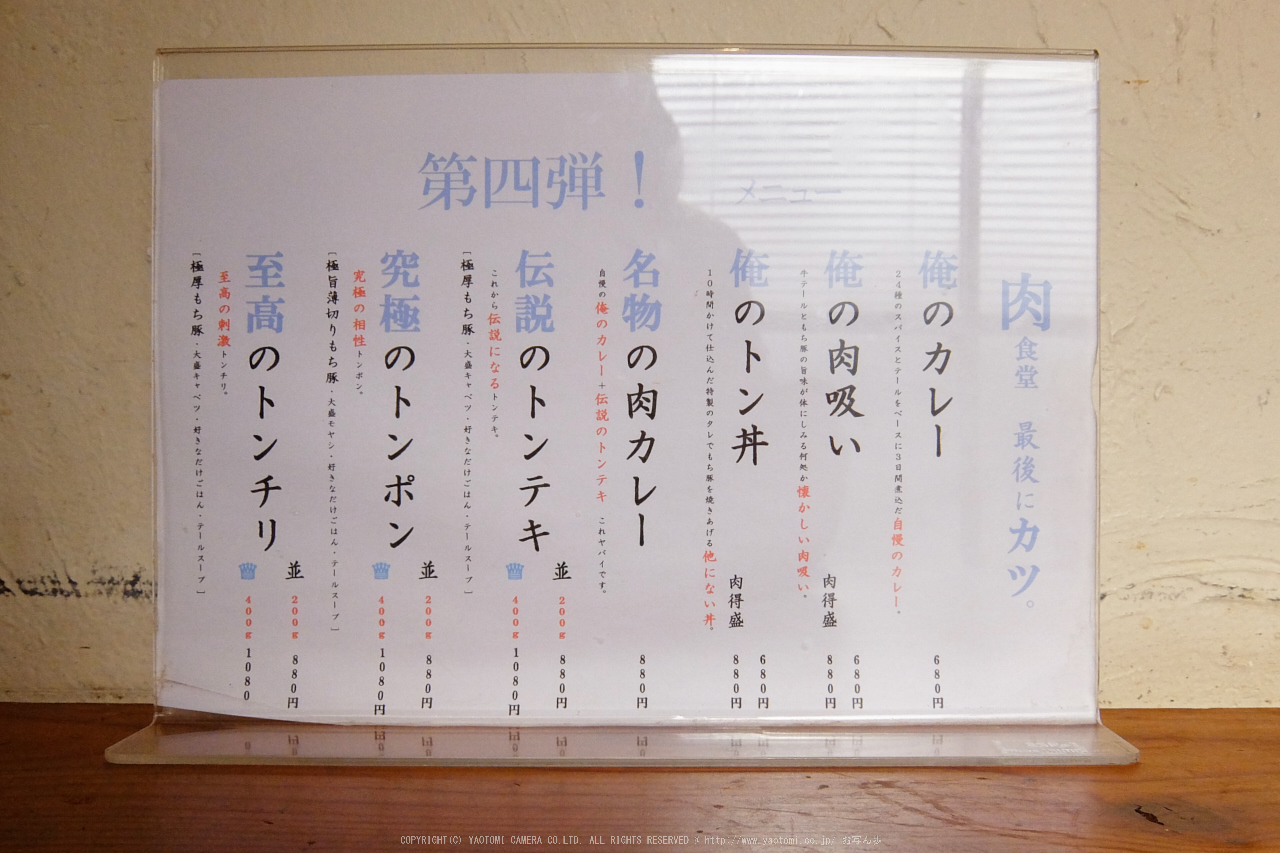 第四弾！
メニュー
肉食堂 最後にカツ。
俺のカレー
680円
24種のスパイスとテールをベースに3日間煮込だ自慢のカレー。
俺の肉吸い
680円
肉得盛 880円
牛テールともち豚の旨味が体にしみる何処か懐かしい肉吸い。
俺のトン丼
680円
肉得盛 880円
10時間かけて仕込んだ特製のタレでもち豚を焼きあげる他にない丼。
名物の肉カレー
880円
自慢の俺のカレー＋伝説のトンテキ これヤバイです。
伝説のトンテキ
並 200g 880円
400g 1080円
これから伝説になるトンテキ。
［極厚もち豚・大盛キャベツ・好きなだけごはん・テールスープ］
究極のトンポン
並 200g 880円
400g 1080円
究極の相性トンポン。
［極旨薄切りもち豚・大盛モヤシ・好きなだけごはん・テールスープ］
至高のトンチリ
並 200g 880円
400g 1080
至高の刺激トンチリ。
［極厚もち豚・大盛キャベツ・好きなだけごはん・テールスープ］
COPYRIGHT(C) YAOTOMI CAMERA CO.LTD. ALL RIGHTS RESERVED : http://www.yaotomi.co.jp/ お写ん歩